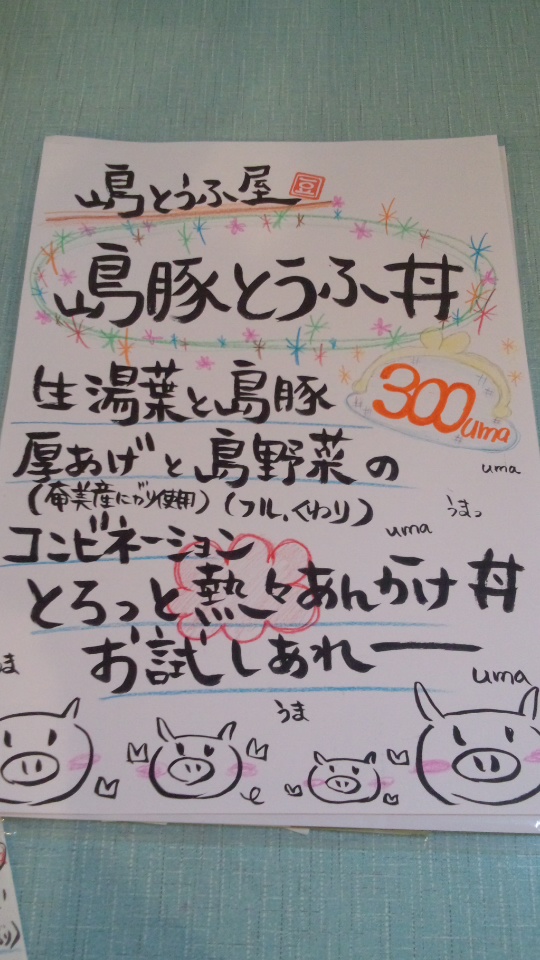 島とうふ屋 豆
島豚とうふ丼
300uma
生湯葉と島豚
厚あげと島野菜の
(奄美産にがり使用)(フル、くわり)
uma
うまっ
uma
コンビネーション
とろっと熱々あんかけ丼
お試しあれー
uma
うま
うま